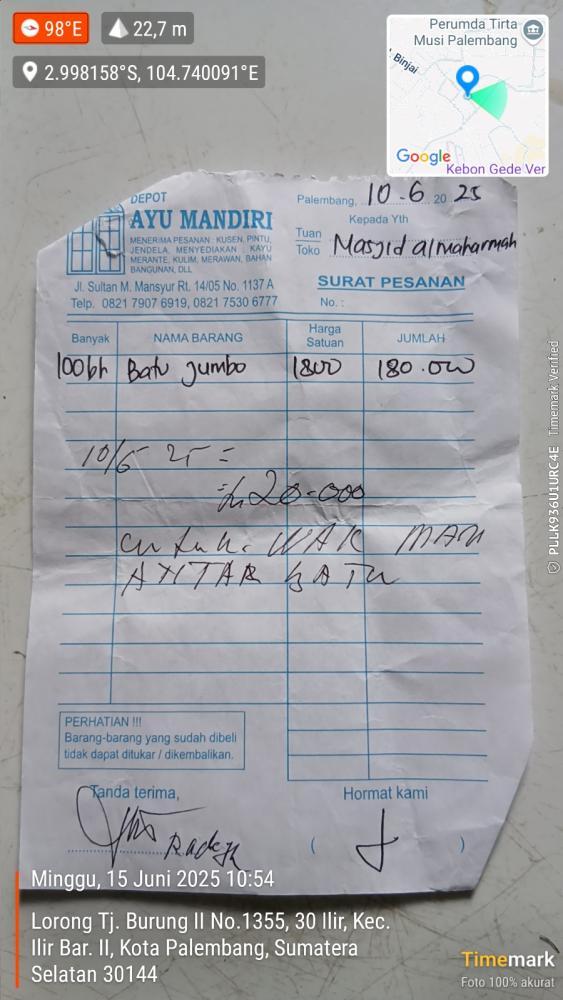 98°E
22,7 m
2.998158°S, 104.740091°E
Perumda Tirta
Musi Palembang
. Binjai
Google
Kebon Gede Ver
DEPOT
AYU MANDIRI
MENERIMA PESANAN : KUSEN, PINTU,
JENDELA, MENYEDIAKAN : KAYU
MERANTE, KULIM, MERAWAN, BAHAN
BANGUNAN, DLL
Jl. Sultan M. Mansyur Rt. 14/05 No. 1137 A
Telp. 0821 7907 6919, 0821 7530 6777
Palembang, 10-6 20 25
Kepada Yth
Tuan
Toko Masjid al maharmah
SURAT PESANAN
No. :
Banyak NAMA BARANG Harga Satuan JUMLAH
100 bh Batu jumbo 1800 180.000
10/6 25 =
20-000
untuk WAK MAN
ANTAR BATU
PERHATIAN !!!
Barang-barang yang sudah dibeli
tidak dapat ditukar / dikembalikan.
Tanda terima,
Hormat kami
( )
Minggu, 15 Juni 2025 10:54
Lorong Tj. Burung II No.1355, 30 Ilir, Kec.
Ilir Bar. II, Kota Palembang, Sumatera
Selatan 30144
Timemark
Foto 100% akurat
PLLK936U1URC4E Timemark Verified